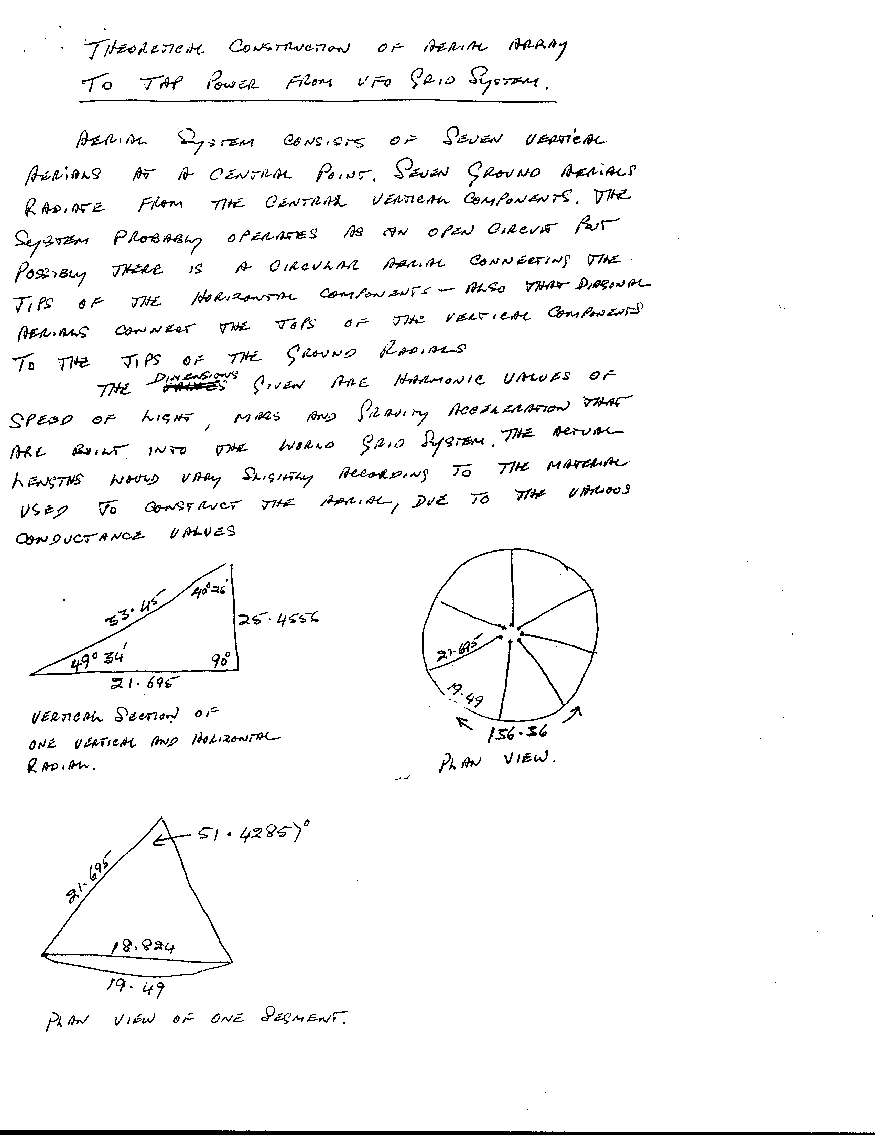 THEORETICAL CONSTRUCTION OF AERIAL ARRAY
TO TAP POWER FROM UFO GRID SYSTEM.
AERIAL SYSTEM CONSISTS OF SEVEN VERTICAL
AERIALS AT A CENTRAL POINT. SEVEN GROUND AERIALS
RADIATE FROM THE CENTRAL VERTICAL COMPONENTS. THE
SYSTEM PROBABLY OPERATES AS AN OPEN CIRCUIT BUT
POSSIBLY THERE IS A CIRCULAR AERIAL CONNECTING THE
TIPS OF THE HORIZONTAL COMPONENTS — ALSO THAT DIAGONAL
AERIALS CONNECT THE TOPS OF THE VERTICAL COMPONENTS
TO THE TIPS OF THE GROUND RADIALS
THE DIMENSIONS GIVEN ARE HARMONIC VALUES OF
SPEED OF LIGHT, MASS AND GRAVITY ACCELERATION THAT
ARE BUILT INTO THE WORLD GRID SYSTEM. THE ACTUAL
LENGTHS WOULD VARY SLIGHTLY ACCORDING TO THE MATERIAL
USED TO CONSTRUCT THE AERIAL, DUE TO THE VARIOUS
CONDUCTANCE VALUES
33.45
40° 26'
25.4556
49° 34'
90°
21.695
VERTICAL SECTION OF
ONE VERTICAL AND HORIZONTAL
RADIAL.
21.695
19.49
136.36
PLAN VIEW.
51.42857°
21.695
18.824
19.49
PLAN VIEW OF ONE SEGMENT.